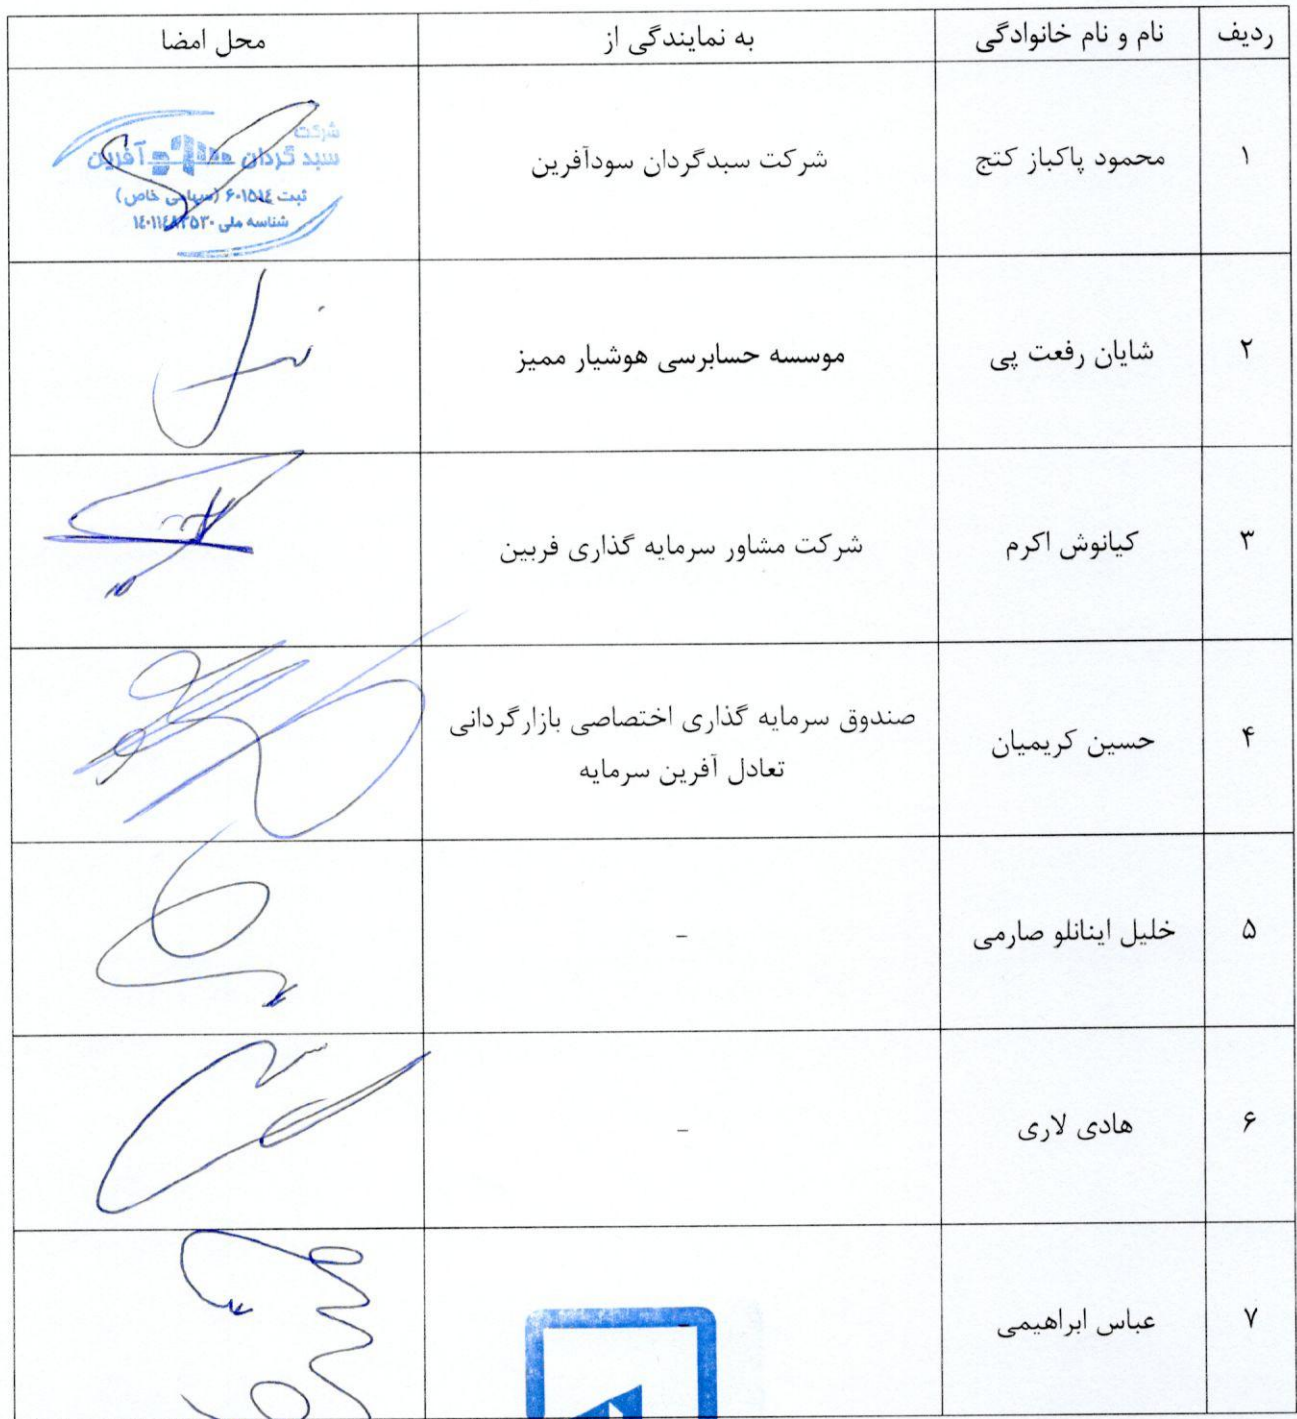 ردیف نام و نام خانوادگی به نمایندگی از محل امضا
۱ محمود پاکباز کتج شرکت سبدگردان سودآفرین
شرکت
سبد گردان آفرین
ثبت ۶۰۱۵۱٤ (سهامی خاص)
شناسه ملی
۲ شایان رفعت پی موسسه حسابرسی هوشیار ممیز
۳ کیانوش اکرم شرکت مشاور سرمایه گذاری فربین
۴ حسین کریمیان صندوق سرمایه گذاری اختصاصی بازارگردانی
تعادل آفرین سرمایه
۵ خلیل اینانلو صارمی -
۶ هادی لاری -
۷ عباس ابراهیمی -